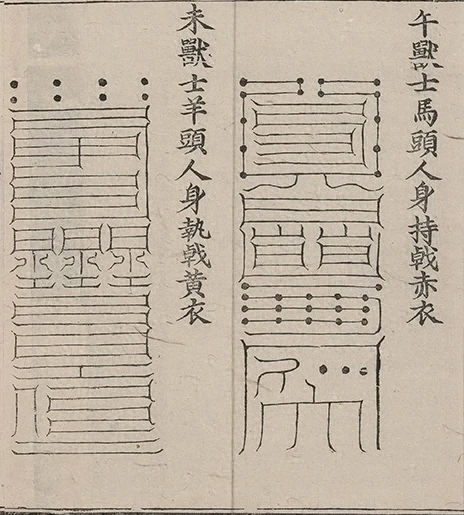 午獸士馬頭人身持戟赤衣
未獸士羊頭人身執戟黃衣